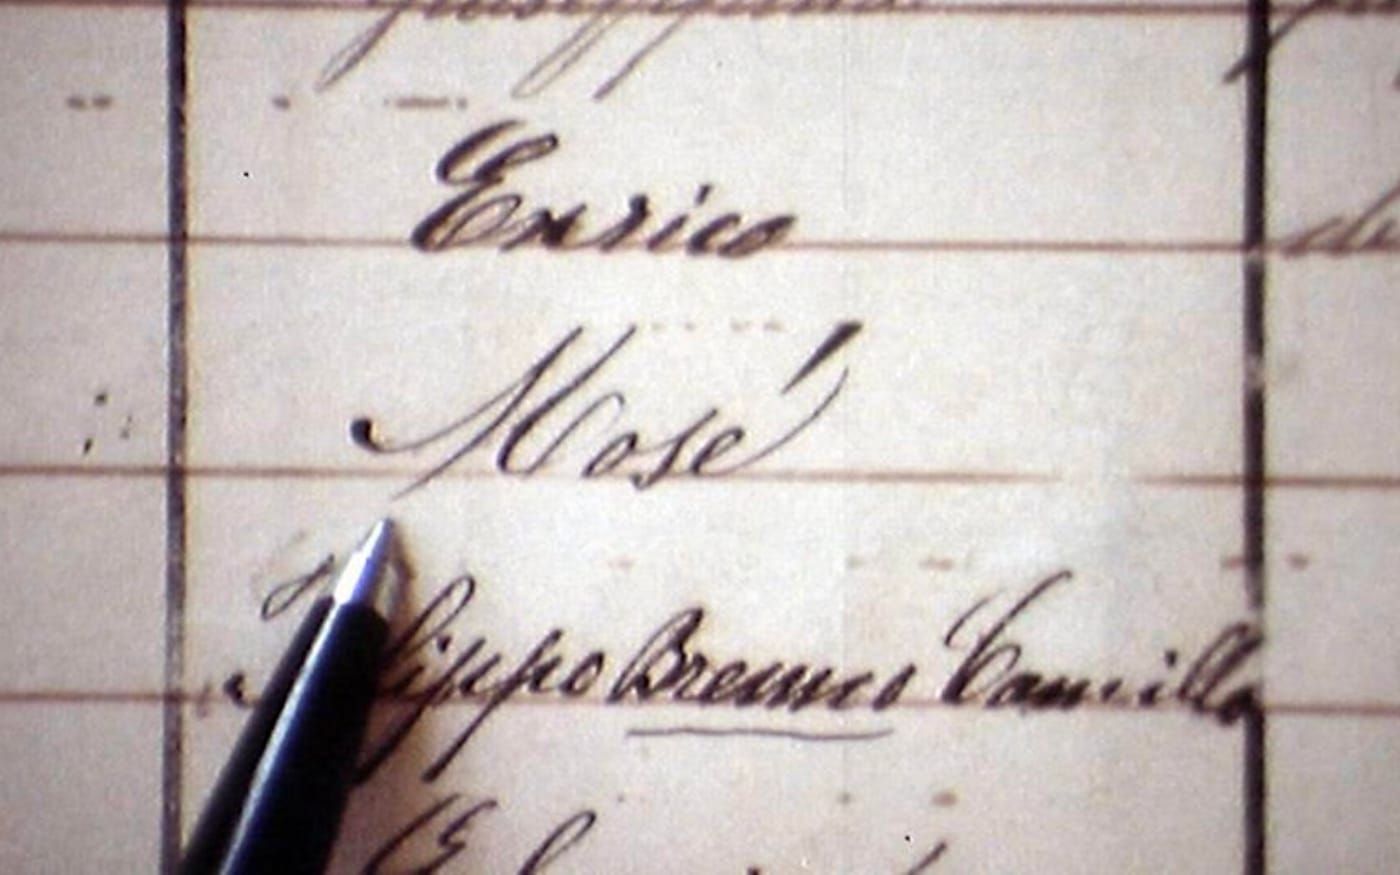 Enrico
Mosé
Filippo Brenno Camillo